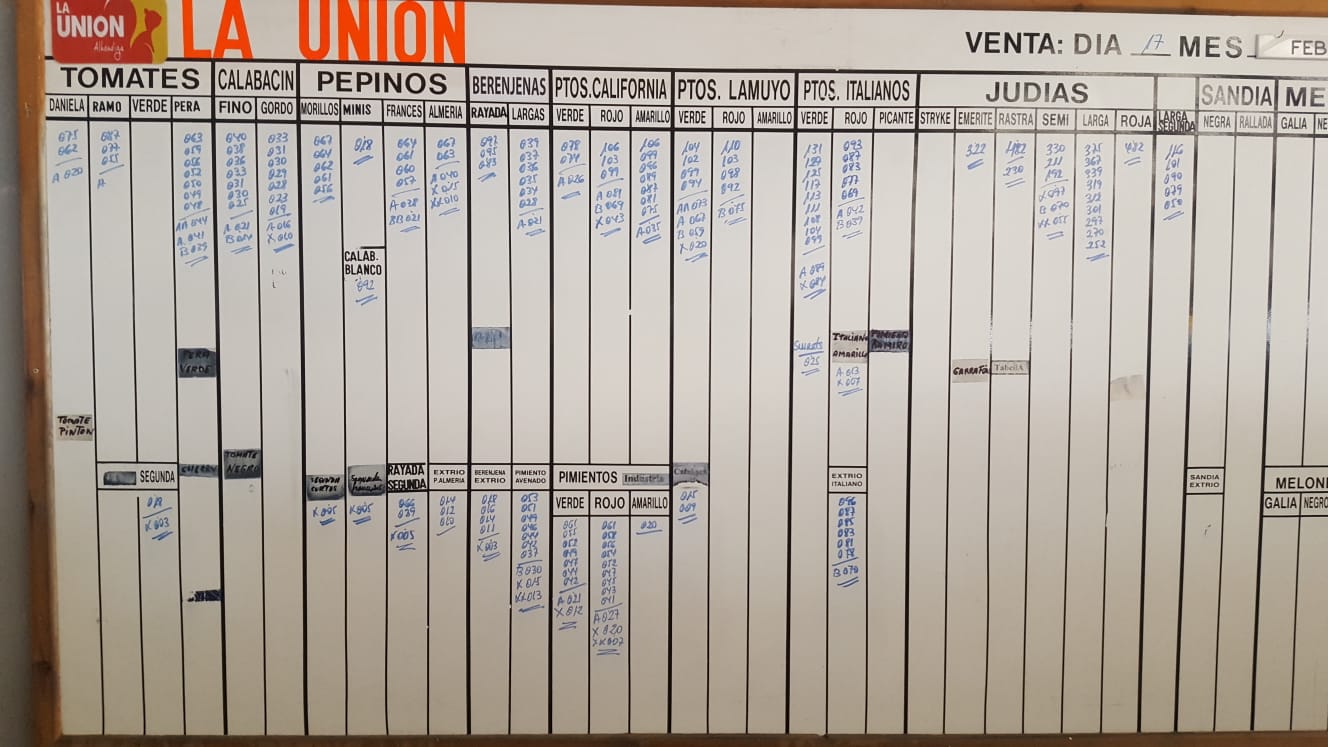 LA UNION
Alhóndiga
LA UNION
VENTA: DIA 17 MES FEB
TOMATES
CALABACIN
PEPINOS
BERENJENAS
PTOS.CALIFORNIA
PTOS. LAMUYO
PTOS. ITALIANOS
JUDIAS
LARGA SEGUNDA
SANDIA
ME
DANIELA RAMO VERDE PERA
FINO GORDO
MORILLOS MINIS FRANCES ALMERIA
RAYADA LARGAS
VERDE ROJO AMARILLO
VERDE ROJO AMARILLO
VERDE ROJO PICANTE
STRYKE EMERITE RASTRA SEMI LARGA ROJA
NEGRA RALLADA
GALIA NE
075
062
A 020
087
077
055
A
063
059
056
052
050
049
048
AA 044
A 041
B 039
040
038
036
033
031
030
025
A 021
B 014
033
031
030
029
028
023
019
A 016
X 010
067
064
062
061
056
018
CALAB.
BLANCO
092
064
061
060
057
A 038
BB 021
067
063
A 040
X 015
XX 010
097
095
083
039
037
036
035
034
028
A 021
078
074
A 026
106
103
099
A 081
B 069
X 043
106
099
096
089
087
081
075
A 035
104
102
099
094
AA 073
A 067
B 059
X 020
110
103
098
092
B 075
131
129
125
117
113
111
108
104
099
A 089
X 084
Sweets
025
093
087
083
077
069
A 042
B 037
ITALIANO
AMARILLO
A 013
X 007
322
482
230
330
211
192
X 097
B 070
XX 055
375
367
339
319
312
301
297
270
252
482
116
101
090
079
050
PERA
VERDE
GARRAFAL
TabellA
TOMATE
PINTON
SEGUNDA
CHERRY
TOMATE
NEGRO
SEGUNDA
CORTOS
Segunda
RAYADA
SEGUNDA
EXTRIO
P.ALMERIA
BERENJENA
EXTRIO
PIMIENTO
AVENADO
PIMIENTOS Industria
VERDE ROJO AMARILLO
EXTRIO
ITALIANO
SANDIA
EXTRIO
MELON
GALIA NEGRO
019
X 003
X 005
X 005
066
029
X 005
014
012
010
018
016
014
011
X 003
053
051
049
046
044
042
037
B 030
X 015
XX 013
061
055
052
049
047
044
042
A 021
X 012
061
058
056
054
052
047
045
043
041
A 027
X 020
XX 007
020
015
009
096
087
085
083
081
078
B 070